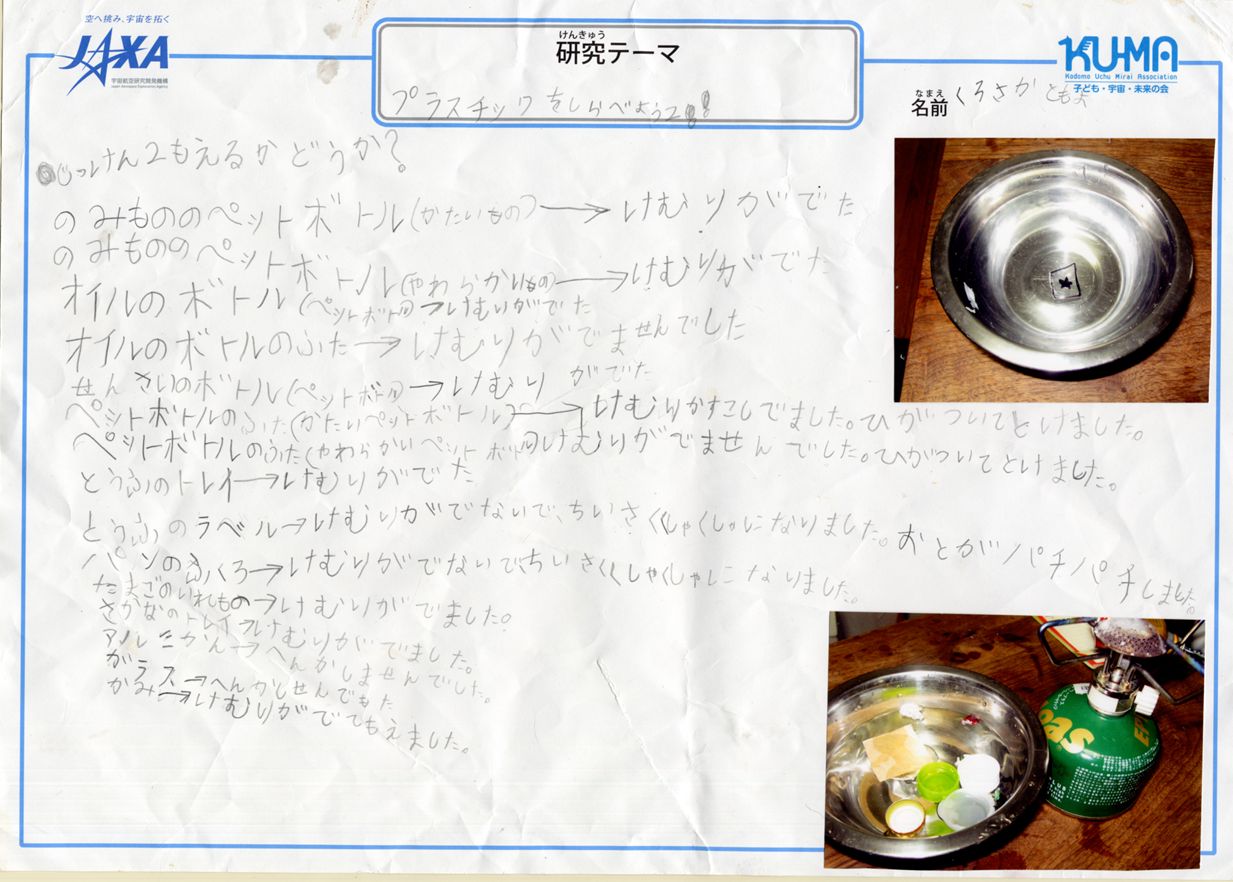 空へ挑み、宇宙を拓く
JAXA
宇宙航空研究開発機構
Japan Aerospace Exploration Agency
けんきゅう
研究テーマ
プラスチックをしらべよう2!!
KU-MA
Kodomo Uchu Mirai Association
子ども・宇宙・未来の会
なまえ
名前 くろさか ともよ
じっけん2もえるかどうか?
のみもののペットボトル(かたいもの)→けむりがでた
のみもののペットボトル(やわらかいもの)→けむりがでた
オイルのボトル(ペットボトル)→けむりがでた
オイルのボトルのふた→けむりがでませんでした
せんざいのボトル(ペットボトル)→けむりがでた
ペットボトルのふた(かたいペットボトル)→けむりがすこしでました。ひがついてとけました。
ペットボトルのふた(やわらかいペットボトル)けむりがでませんでした。ひがついてとけました。
とうふのトレイ→けむりがでた
とうふのラベル→けむりがでないで、ちいさくくしゃくしゃになりました。おとがパチパチしました。
パンのふくろ→けむりがでないで、ちいさくくしゃくしゃになりました。
たまごのいれもの→けむりがでました。
さかなのトレイ→けむりがでました。
アルミかん→へんかしませんでした。
ガラス→へんかしせんでもた
かみ→けむりがでてもえました。